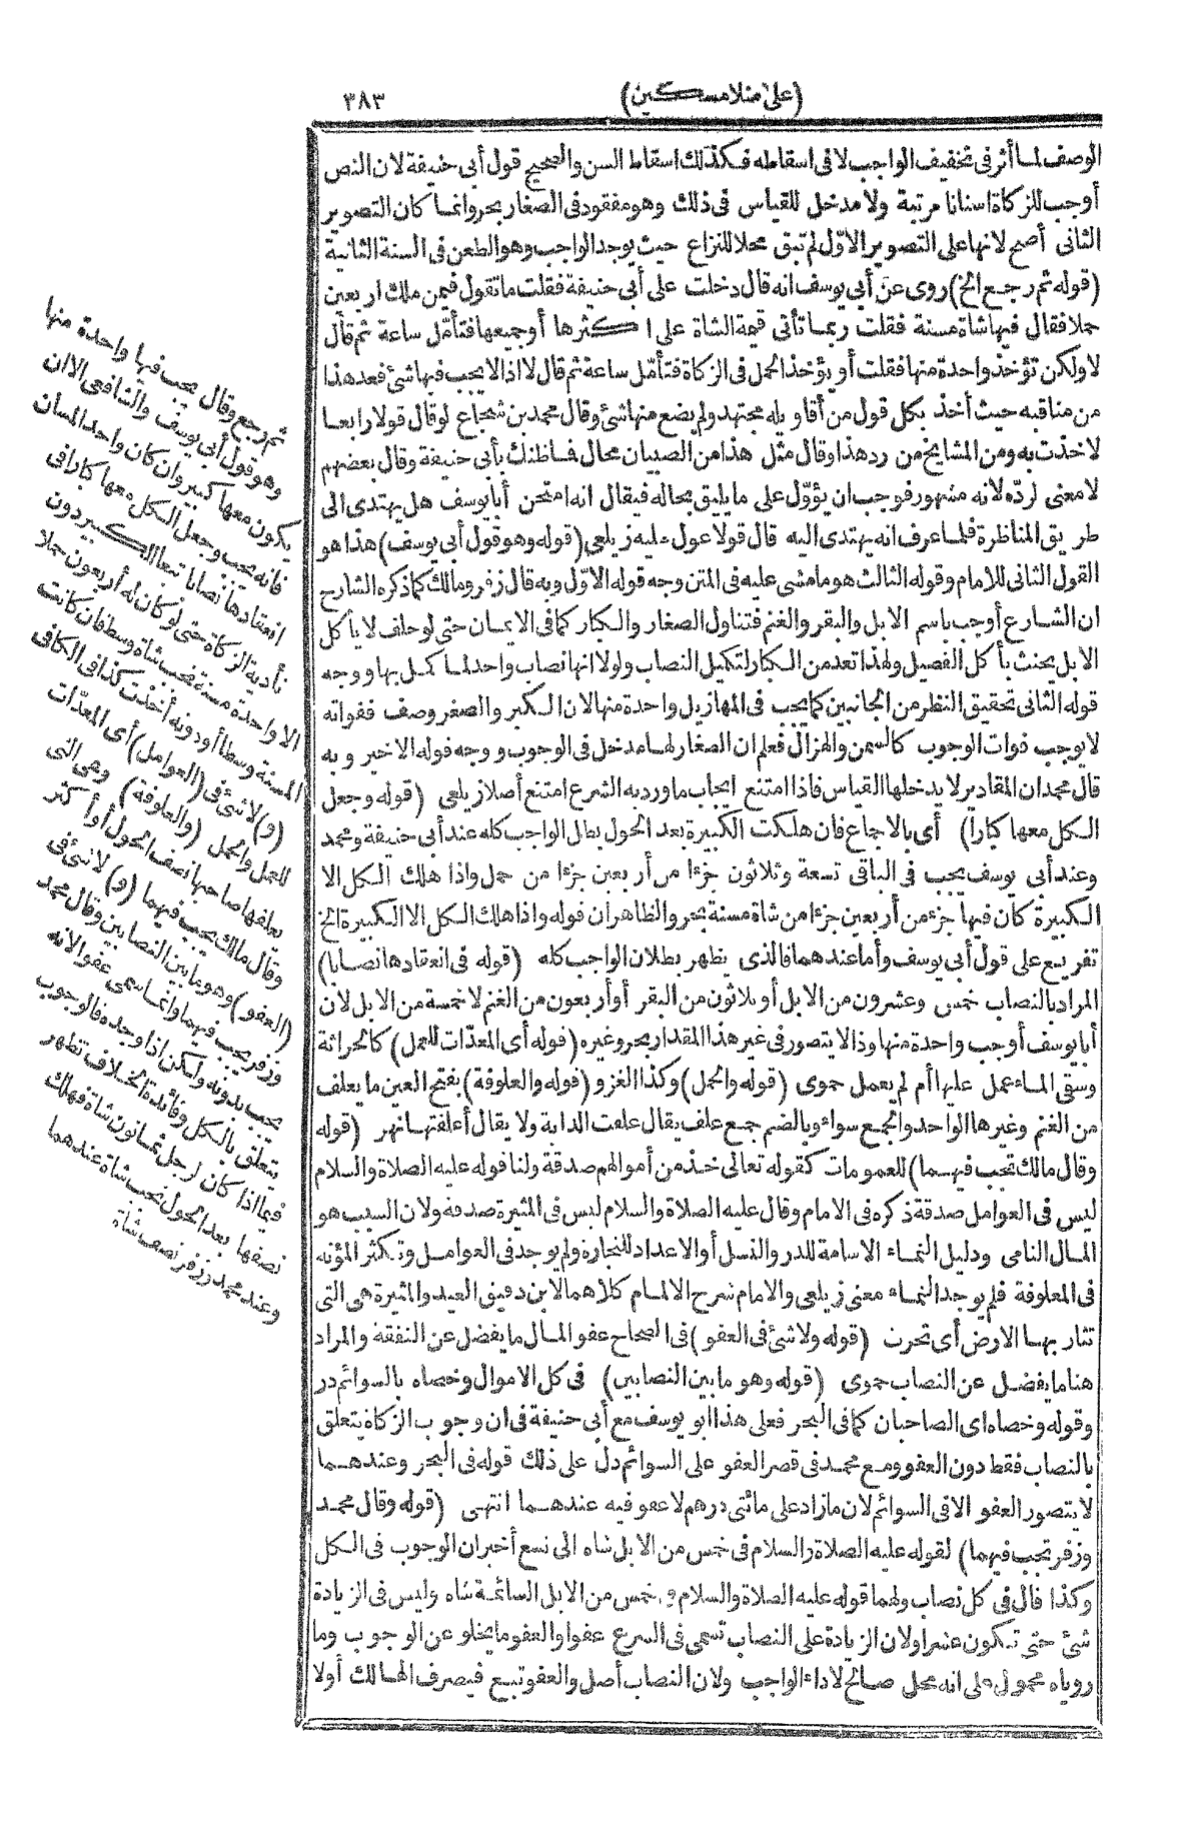 (على منلا مسكين)
٣٨٣
الوصف لما أثر فى تخفيف الواجب لا فى اسقاطه فكذلك اسقاط السن والصحيح قول أبى حنيفة لان النص
أوجب للزكاة اسنانا مرتبة ولا مدخل للقياس فى ذلك وهو مفقود فى الصغار بحر وانما كان التصوير
الثانى أصح لانها على التصوير الاوّل لم تبق محلا للنزاع حيث يوجد الواجب وهو الطعن فى السنة الثانية
(قوله ثم رجع الخ) روى عن أبى يوسف انه قال دخلت على أبى حنيفة فقلت ما تقول فيمن ملك اربعين
حملا فقال فيها شاة مسنة فقلت ربما تأتى قيمة الشاة على اكثرها أوجميعها فتأمّل ساعة ثم قال
لا ولكن تؤخذ واحدة منها فقلت أو يؤخذ الحمل فى الزكاة فتأمّل ساعة ثم قال لا اذا لا يجب فيها شئ فعد هذا
من مناقبه حيث أخذ بكل قول من أقاويله مجتهد ولم يضع منها شئ وقال محمد بن شجاع لو قال قولا رابعا
لاخذت به ومن المشايخ من رد هذا وقال مثل هذا من الصبيان محال فما ظنك بأبى حنيفة وقال بعضهم
لا معنى لردّه لانه مشهور فوجب ان يؤوّل على ما يليق بحاله فيقال انه امتحن أبا يوسف هل يهتدى الى
طريق المناظرة فلما عرف انه يهتدى اليه قال قولا عول عليه زيلعى (قوله وهو قول أبى يوسف) هذا هو
القول الثانى للامام وقوله الثالث هو ما مشى عليه فى المتن وجه قوله الاوّل وبه قال زفر ومالك كما ذكره الشارح
ان الشارع أوجب باسم الابل والبقر والغنم فتناول الصغار والكبار كما فى الايمان حتى لو حلف لا يأكل
الابل يحنث بأكل الفصيل ولهذا تعد من الكبار لتكميل النصاب ولولا انها نصاب واحد لما كمل بها ووجه
قوله الثانى تحقيق النظر من الجانبين كما يجب فى المهازيل واحدة منها لان الكبر والصغر وصف ففواته
لا يوجب فوات الوجوب كالسمن والهزال فعلم ان الصغار لها مدخل فى الوجوب ووجه قوله الاخير وبه
قال محمد ان المقادير لا يدخلها القياس فاذا امتنع ايجاب ما ورد به الشرع امتنع أصلا زيلعى (قوله وجعل
الكل معها كبارا) أى بالاجماع فان هلكت الكبيرة بعد الحول بطل الواجب كله عند أبى حنيفة ومحمد
وعند أبى يوسف يجب فى الباقى تسعة وثلاثون جزءا من أربعين جزءا من حمل واذا هلك الكل الا
الكبيرة كان فيها جزء من أربعين جزءا من شاة مسنة بحر والظاهر ان قوله واذا هلك الكل الا الكبيرة الخ
تفريع على قول أبى يوسف وأما عندهما فالذى يظهر بطلان الواجب كله (قوله فى انعقادها نصابا)
المراد بالنصاب خمس وعشرون من الابل أو ثلاثون من البقر أو أربعون من الغنم لا خمسة من الابل لان
أبا يوسف أوجب واحدة منها وذا لا يتصور فى غير هذا المقدار بحر وغيره (قوله أى المعدّات للعمل) كالحراثة
وسقى الماء عمل عليها أم لم يعمل حموى (قوله والحمل) وكذا الغزو (قوله والعلوفة) بفتح العين ما يعلف
من الغنم وغيرها الواحد والجمع سواء وبالضم جمع علف يقال علفت الدابة ولا يقال أعلفتها نهر (قوله
وقال مالك تجب فيهما) للعمومات كقوله تعالى خذ من أموالهم صدقة ولنا قوله عليه الصلاة والسلام
ليس فى العوامل صدقة ذكره فى الامام وقال عليه الصلاة والسلام ليس فى المثيرة صدقة ولان السبب هو
المال النامى ودليل النماء الاسامة للدر والنسل أو الاعداد للتجارة ولم يوجد فى العوامل وتكثر المؤنه
فى المعلوفة فلم يوجد النماء معنى زيلعى والامام شرح الالمام كلاهما لابن دقيق العيد والمثيرة هى التى
تثار بها الارض أى تحرث (قوله ولا شئ فى العفو) فى الصحاح عفو المال ما يفضل عن النفقة والمراد
هنا ما يفضل عن النصاب حموى (قوله وهو ما بين النصابين) فى كل الاموال وخصاه بالسوائم در
وقوله وخصاه اى الصاحبان كما فى البحر فعلى هذا ابو يوسف مع أبى حنيفة فى ان وجوب الزكاة يتعلق
بالنصاب فقط دون العفو ومع محمد فى قصر العفو على السوائم دل على ذلك قوله فى البحر وعندهما
لا يتصور العفو الا فى السوائم لان ما زاد على مائتى درهم لا عفو فيه عندهما انتهى (قوله وقال محمد
وزفر تجب فيهما) لقوله عليه الصلاة والسلام فى خمس من الابل شاه الى تسع أخبر ان الوجوب فى الكل
وكذا قال فى كل نصاب ولهما قوله عليه الصلاة والسلام فى خمس من الابل السائمة شاه وليس فى الزيادة
شئ حتى تكون عشرا ولان الزيادة على النصاب تسمى فى الشرع عفوا والعفو ما يخلو عن الوجوب وما
روياه محمول على انه محل صالح لاداء الواجب ولان النصاب أصل والعفو تبع فيصرف الهالك أولا
ثم رجع وقال يجب فيها واحدة منها
وهو قول أبى يوسف والشافعى الا ان
يكون معها كبير وان كان واحد المسان
فانه يجب وجعل الكل معها كبارا فى
انعقادها نصابا تبعا للكبير دون
تأدية الزكاة حتى لو كان له أربعون حملا
الا واحدة مسنة تجب شاة وسط فان كانت
المسنة وسطا أو دونه أخذت كذا فى الكافى
(و) لا شئ فى (العوامل) أى المعدّات
للعمل والحمل (والعلوفة) وهى التى
يعلفها صاحبها نصف الحول أو أكثر
وقال مالك يجب فيهما (و) لا شئ فى
(العفو) وهو ما بين النصابين وقال محمد
وزفر يجب فيهما وانما سمى عفوا لانه
يجب بدونه ولكن اذا وجد فالوجوب
يتعلق بالكل وفائدة الخلاف تظهر
فيما اذا كان لرجل ثمانون شاة فهلك
نصفها بعد الحول تجب شاة عندهما
وعند محمد وزفر نصف شاة